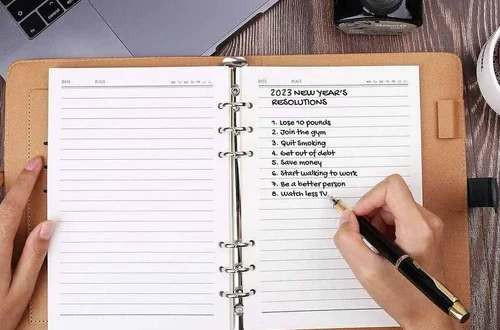 DATE PLACE MO TU WE TH FR SA SU
DATE PLACE MO TU WE TH FR SA SU
2023 NEW YEAR'S
RESOLUTIONS
1. Lose 10 pounds
2. Join the gym
3. Quit Smoking
4. Get out of debt
5. Save money
6. Start walking to work
7. Be a better person
8. Watch less TV